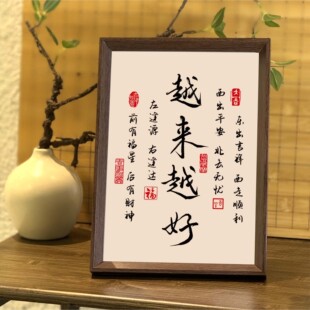 东出吉祥 西走顺利
西出平安 北去无忧
越来越好
左逢源 右逢达
福
前有福星 后有财神